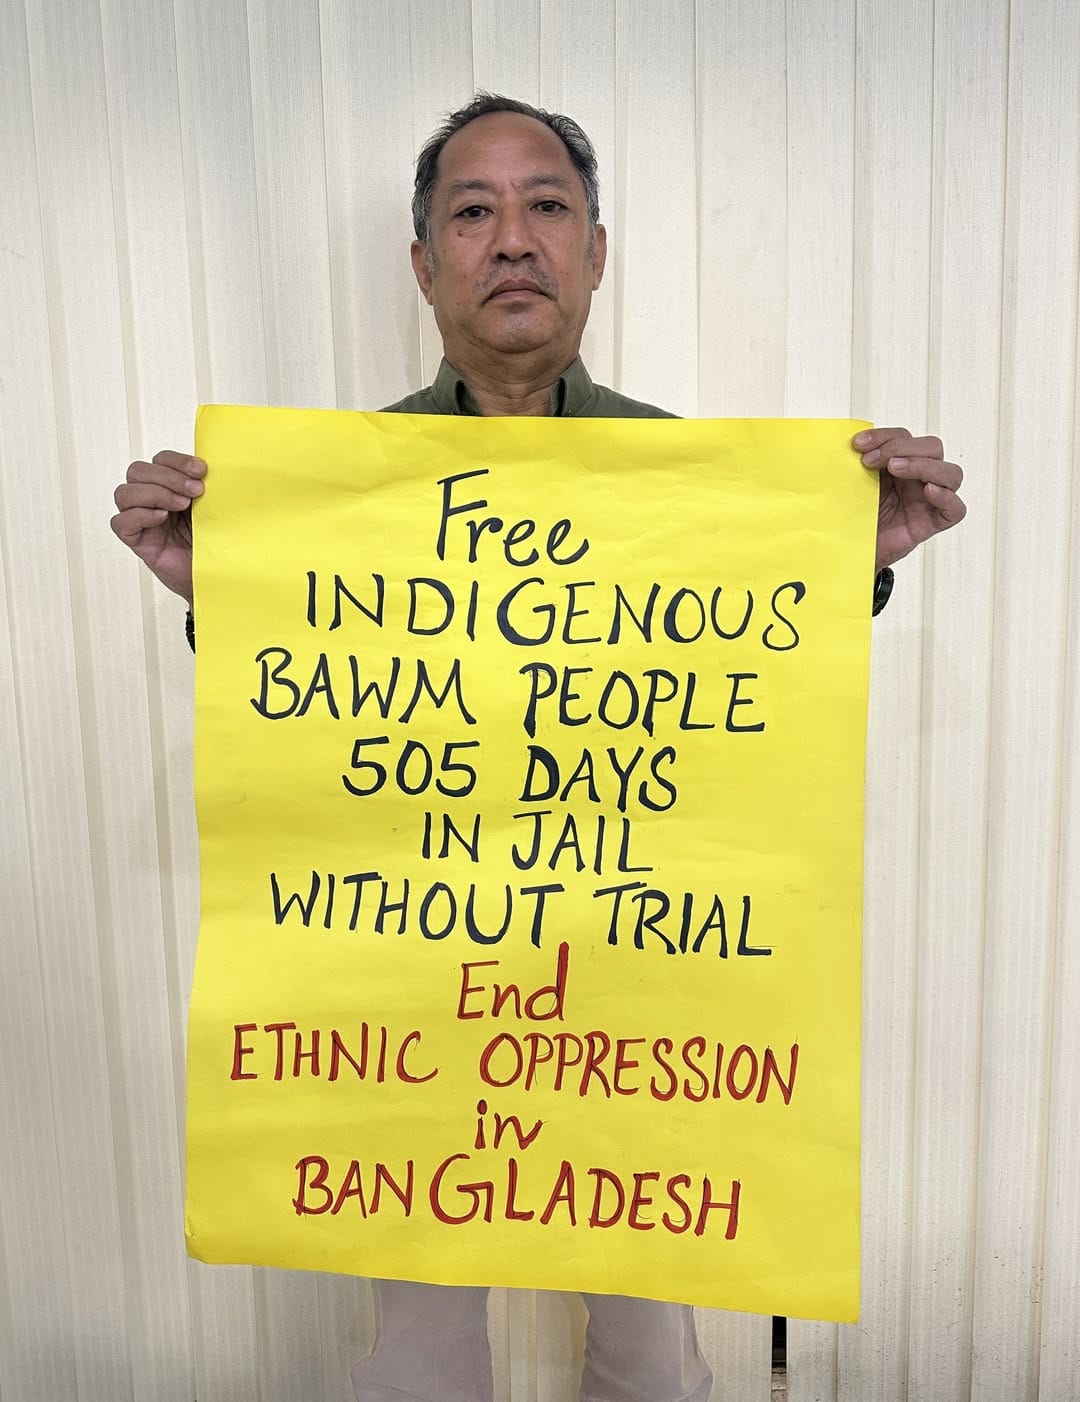 Free
INDIGENOUS
BAWM PEOPLE
505 DAYS
IN JAIL
WITHOUT TRIAL
End
ETHNIC OPPRESSION
in
BANGLADESH